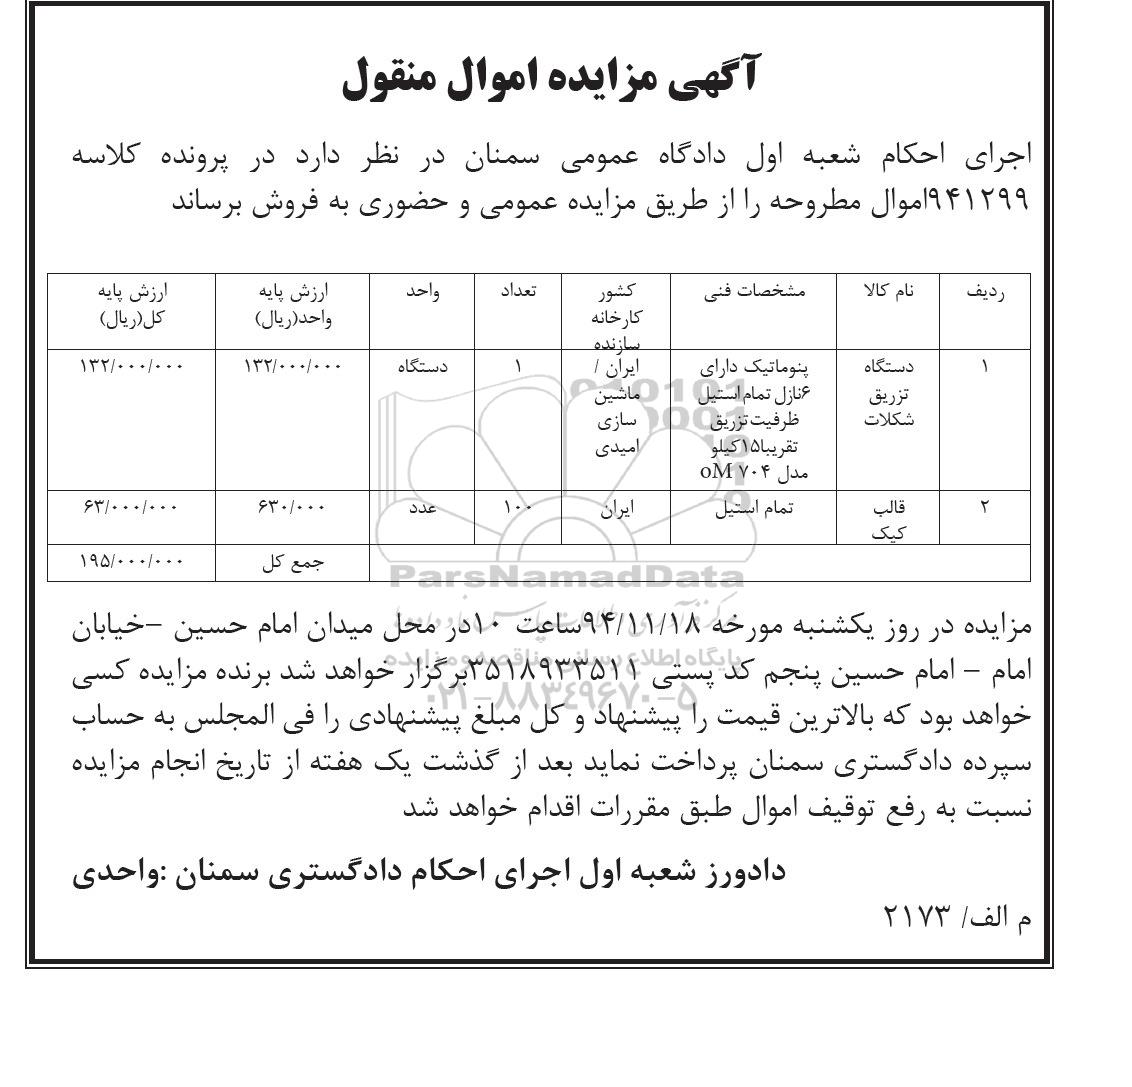 آگهی مزایده اموال منقول
اجرای احکام شعبه اول دادگاه عمومی سمنان در نظر دارد در پرونده کلاسه
۹۴۱۲۹۹اموال مطروحه را از طریق مزایده عمومی و حضوری به فروش برساند
ردیف نام کالا مشخصات فنی کشور کارخانه سازنده تعداد واحد ارزش پایه واحد(ریال) ارزش پایه کل(ریال)
۱ دستگاه تزریق شکلات پنوماتیک دارای ۶نازل تمام‌استیل ظرفیت‌تزریق تقریبا۱۵کیلو مدل oM ۷۰۴ ایران / ماشین سازی امیدی ۱ دستگاه ۱۳۲/۰۰۰/۰۰۰ ۱۳۲/۰۰۰/۰۰۰
۲ قالب کیک تمام استیل ایران ۱۰۰ عدد ۶۳۰/۰۰۰ ۶۳/۰۰۰/۰۰۰
جمع کل ۱۹۵/۰۰۰/۰۰۰
ParsNamadData
مزایده در روز یکشنبه مورخه ۹۴/۱۱/۱۸ساعت ۱۰در محل میدان امام حسین –خیابان
امام – امام حسین پنجم کد پستی ۳۵۱۸۹۳۳۵۱۱برگزار خواهد شد برنده مزایده کسی
پایگاه اطلاع رسانی مناقصه و مزایده
۰۲۱-۸۸۳۴۹۶۷۰-۵
خواهد بود که بالاترین قیمت را پیشنهاد و کل مبلغ پیشنهادی را فی المجلس به حساب
سپرده دادگستری سمنان پرداخت نماید بعد از گذشت یک هفته از تاریخ انجام مزایده
نسبت به رفع توقیف اموال طبق مقررات اقدام خواهد شد
دادورز شعبه اول اجرای احکام دادگستری سمنان :واحدی
م الف/ ۲۱۷۳